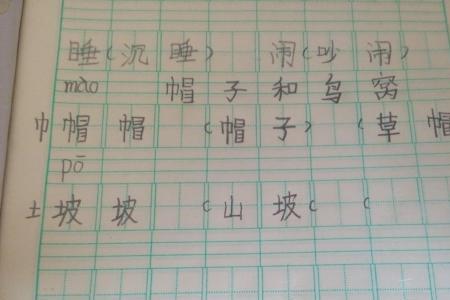 睡(沉睡) 闹(吵闹)
mào 帽子和鸟窝
巾 帽 帽 (帽子) (草帽
pō
土 坡 坡 (山坡( (